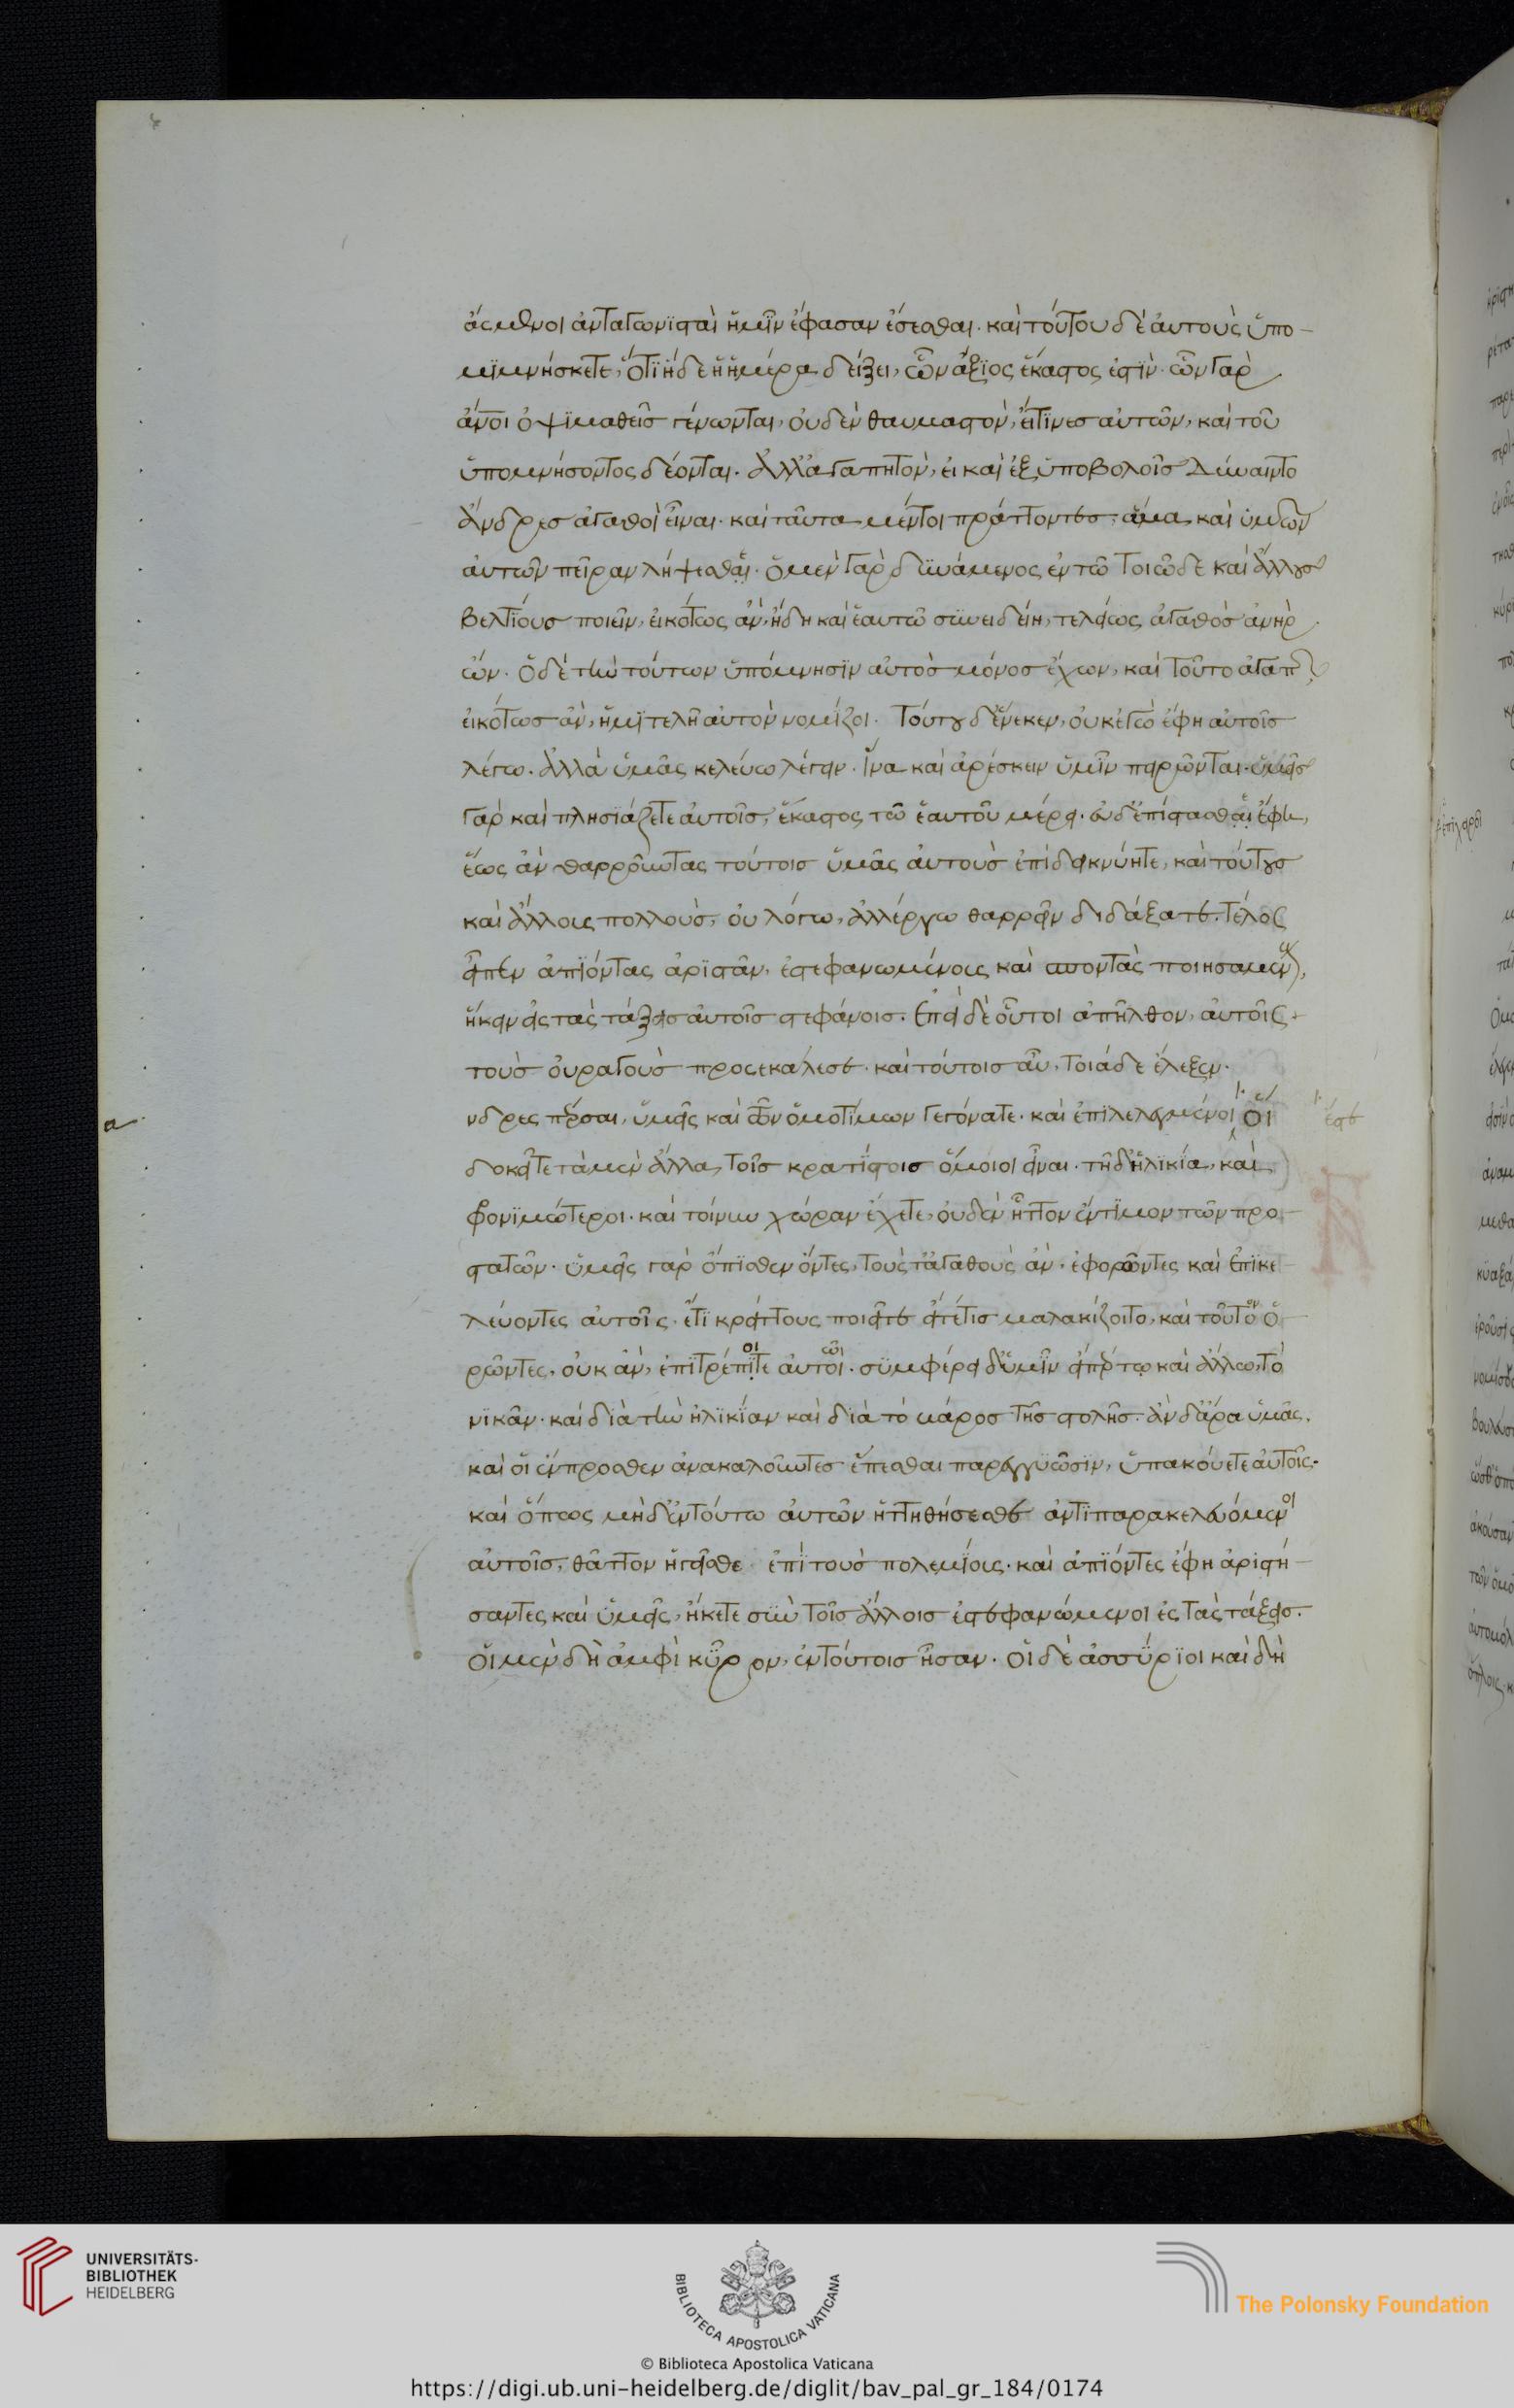 ἄσμενοι ἀνταγωνισταὶ ἡμῖν ἔφασαν ἔσεσθαι. καὶ τούτου δὲ αὐτοὺς ὑπο–
μιμνήσκετε, ὅτι ἥδε ἡ ἡμέρα δείξει, ὧν ἄξιος ἕκαστος ἐστὶν. ὧν γὰρ
ἂν̅οι ὀψιμαθεῖς γένωνται, οὐδὲν θαυμαστὸν, εἴ τινες αὐτῶν, καὶ τοῦ
ὑπομνήσοντος δέονται. ἀλλ' ἀγαπητὸν, εἰ καὶ ἐξ ὑποβολοῖς δύναιντο
ἄνδρες ἀγαθοὶ εἶναι. καὶ ταῦτα μέντοι πράττοντες, ἅμα καὶ ὑμῶν
αὐτῶν πεῖραν λήψεσθαι. ὁ μὲν γὰρ δυνάμενος ἐν τῶ τοιῶδε καὶ ἄλλους
βελτίους ποιεῖν, εἰκότως ἂν, ἤδη καὶ ἑαυτῶ συνειδείη, τελείως ἀγαθὸς ἀνὴρ
ὤν. ὁ δὲ τὴν τούτων ὑπόμνησιν αὐτὸς μόνος ἔχων, καὶ τοῦτο ἀγαπῶν,
εἰκότως ἂν, ἡμιτελῆ αὐτὸν νομίζοι. τούτου δ' ἕνεκεν, οὐκ ἐγὼ ἔφη αὐτοῖς
λέγω. ἀλλὰ ὑμᾶς κελεύω λέγειν. ἵνα καὶ ἀρέσκειν ὑμῖν πειρῶνται. ὑμεῖς
γὰρ καὶ πλησιάζετε αὐτοῖς, ἕκαστος τῶ ἑαυτοῦ μέρει. εὖ δ' ἐπίστασθαι ἔφη,
ἕως ἂν θαρροῦντας τούτοις ὑμᾶς αὐτοὺς ἐπιδεικνύητε, καὶ τούτους
καὶ ἄλλους πολλοὺς, οὐ λόγω, ἀλλ' ἔργω θαρρεῖν διδάξατε. τέλος
εἶπεν ἀπιόντας ἀριστᾶν, ἐστεφανωμένους καὶ σποντὰς ποιησαμένους,
ἥκειν εἰς τὰς τάξεις αὐτοῖς στεφάνοις. ἐπεὶ δὲ οὗτοι ἀπῆλθον, αὐτοῖς
τοὺς οὐραγοὺς προσεκάλεσε. καὶ τούτοις αὖ, τοιάδε ἔλεξεν.
νδρες πέρσαι, ὑμεῖς καὶ τῶν ὁμοτίμων γεγόνατε. καὶ ἐπιλελεγμένοι οἳ ἐστὲ
δοκεῖτε τὰ μὲν ἄλλα, τοῖς κρατίστοις ὅμοιοι εἶναι. τῆ δ' ἡλικία, καὶ
φρονιμώτεροι. καὶ τοίνυν χώραν ἔχετε, οὐδὲν ἧττον ἔντιμον τῶν προ
στατῶν. ὑμεῖς γὰρ ὄπισθεν ὄντες, τοὺς τ' ἀγαθοὺς ἂν. ἐφορῶντες καὶ ἐπικε
λεύοντες αὐτοῖς. ἔτι κρείττους ποιεῖτε εἴτέ τις μαλακίζοιτο, καὶ τοῦτον ὁ
ρῶντες, οὐκ ἂν, ἐπιτρέποιτε αὐτῶ. συμφέρει δ' ὑμῖν εἴπέρ τω καὶ ἄλλω, τὸ
νικᾶν. καὶ διὰ τὴν ἡλικίαν καὶ διὰ τὸ μάρος τῆς στολῆς. ἂν δ' ἄρα ὑμᾶς,
καὶ οἱ ἔνπροσθεν ἀνακαλοῦντες ἕπεσθαι παρεγγυῶσιν, ὑπακούετε αὐτοῖς.
καὶ ὅπως μὴ δ' ἐν τούτω αὐτῶν ἡττηθήσεσθε ἀντιπαρακελευόμενοι
αὐτοῖς, θᾶττον ἡγεῖσθε ἐπὶ τοὺς πολεμίους. καὶ ἀπιόντες ἔφη ἀριστή–
σαντες καὶ ὑμεῖς, ἥκετε σὺν τοῖς ἄλλοις ἐστεφανώμενοι ἐς τὰς τάξεις.
οἱ μὲν δὴ ἀμφὶ κῦρον, ἐν τούτοις ἦσαν. οἱ δὲ ἀσσύριοι καὶ δὴ
UNIVERSITÄTS-
BIBLIOTHEK
HEIDELBERG
BIBLIOTECA APOSTOLICA VATICANA
© Biblioteca Apostolica Vaticana
The Polonsky Foundation
https://digi.ub.uni-heidelberg.de/diglit/bav_pal_gr_184/0174